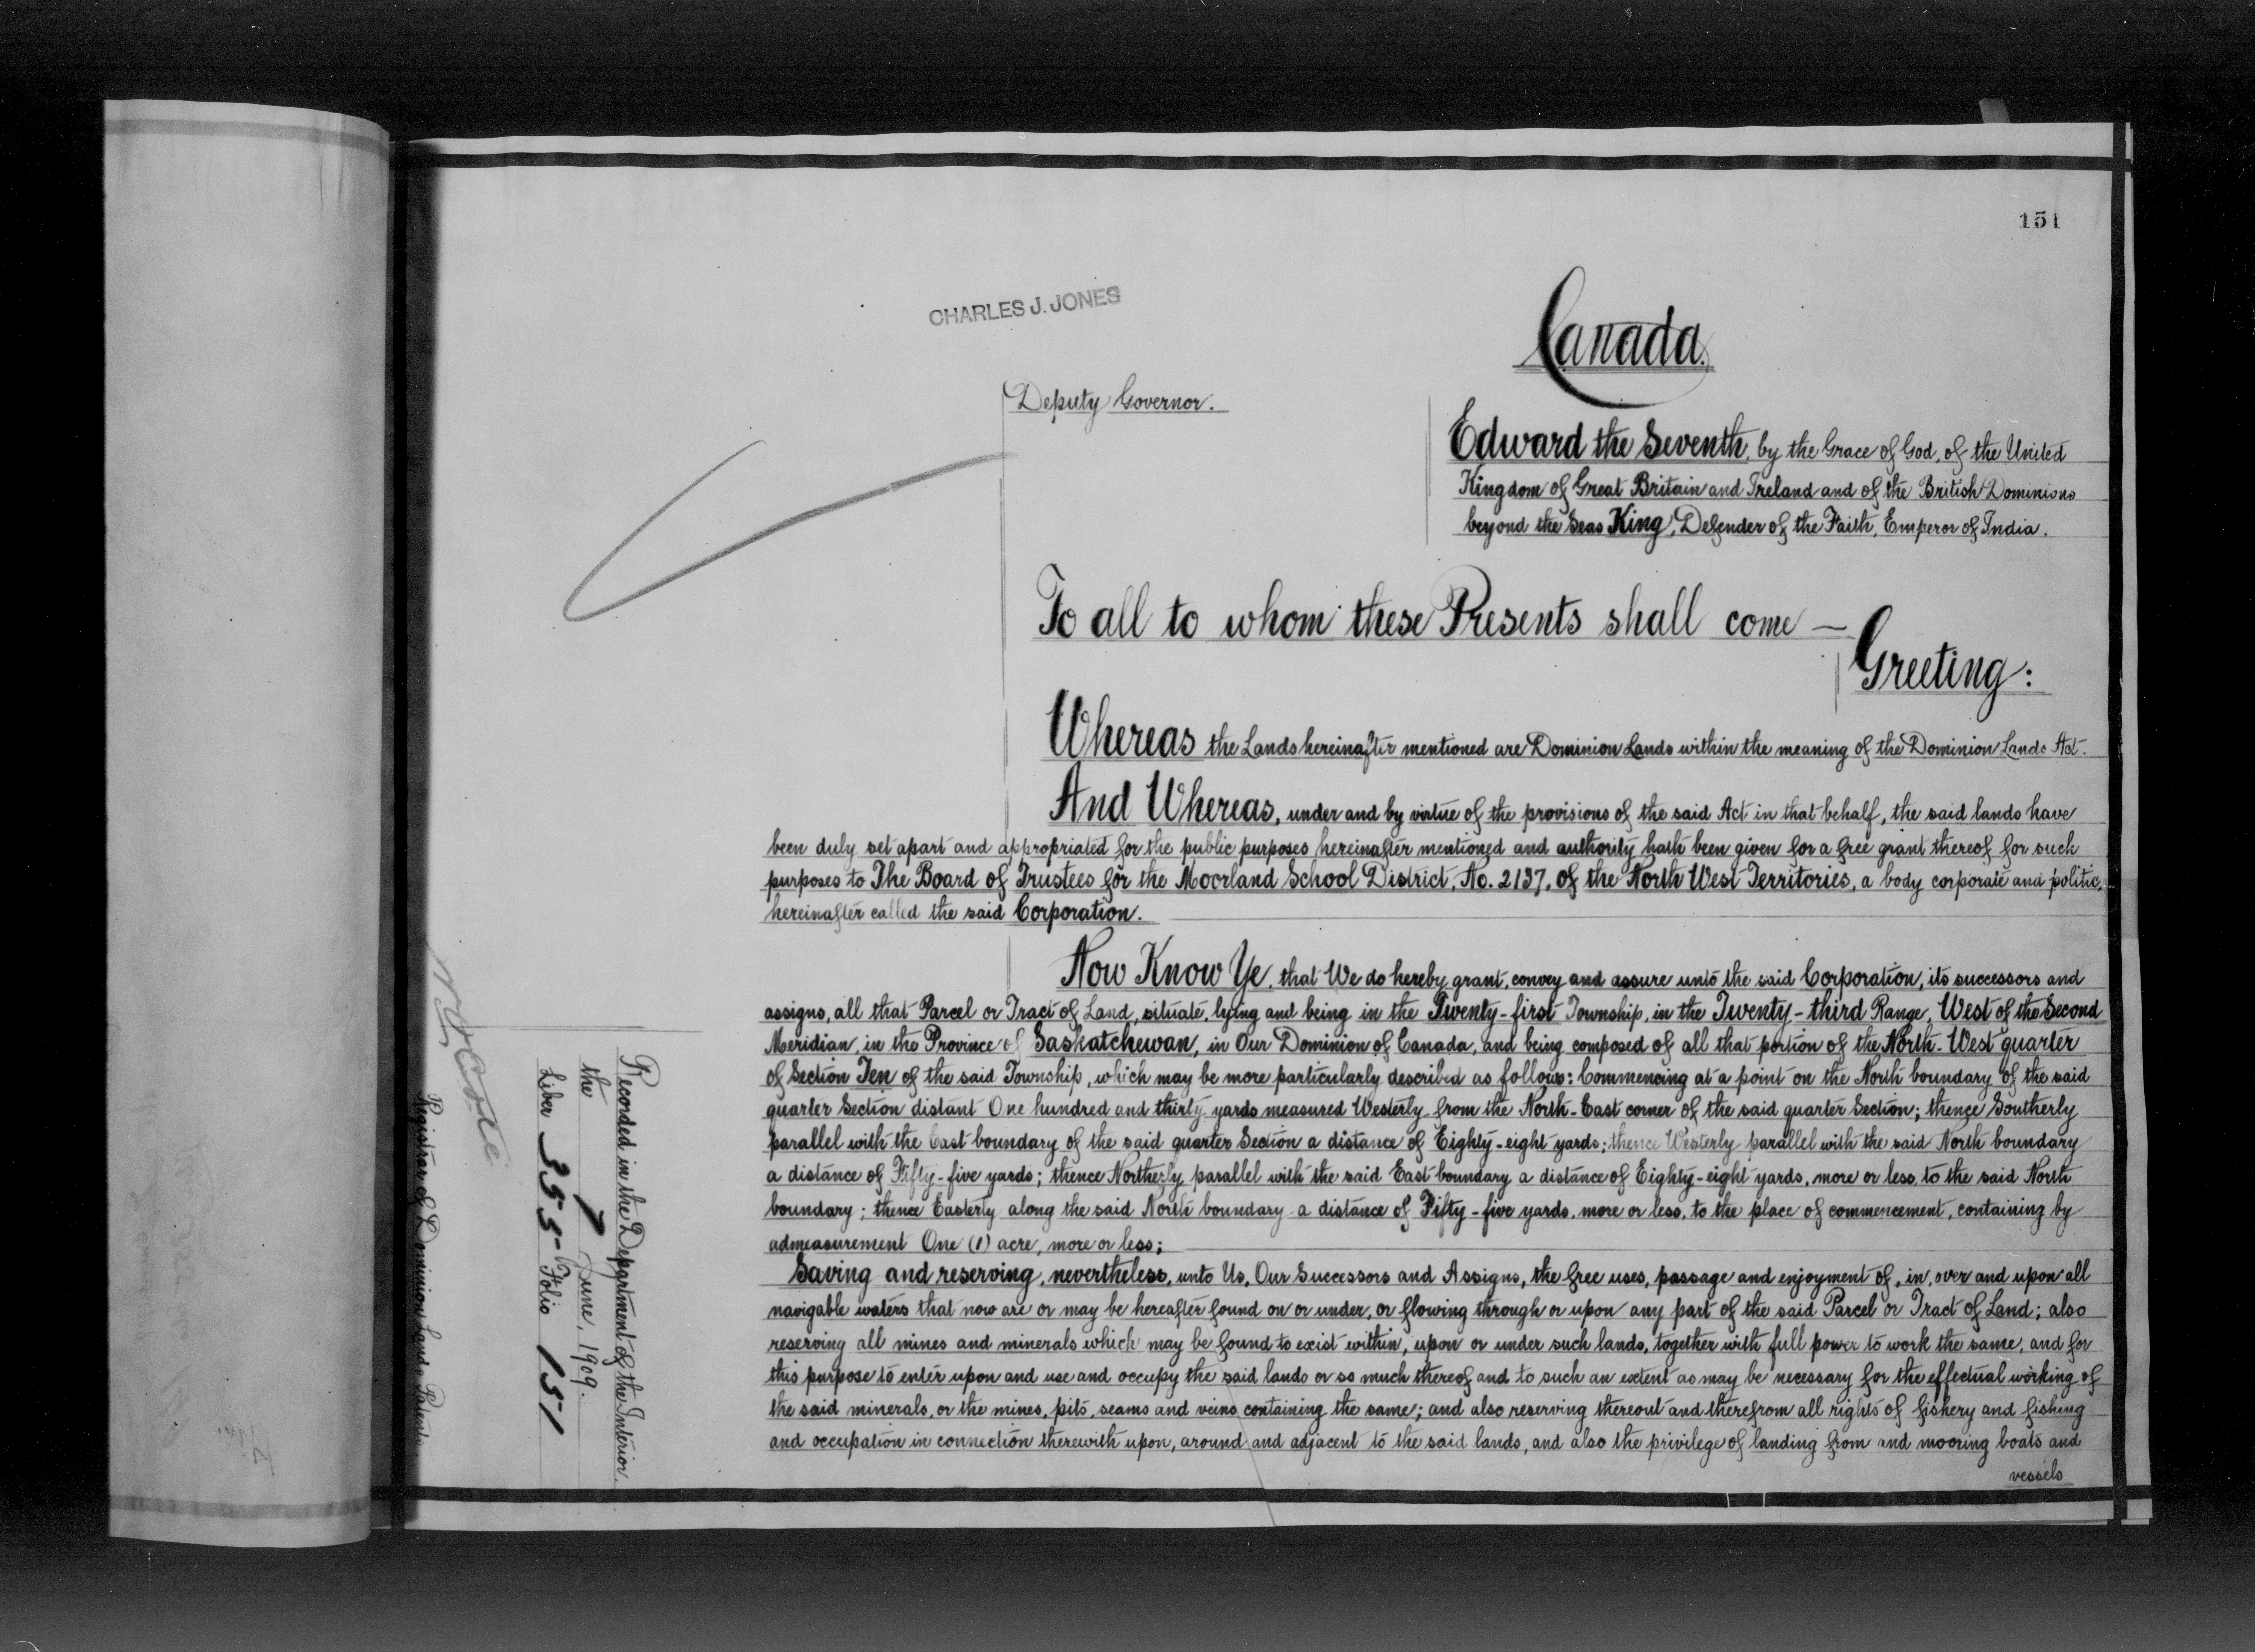 151
CHARLES J. JONES
Canada.
Deputy Governor.
Edward the Seventh, by the Grace of God, of the United
Kingdom of Great Britain and Ireland and of the British Dominions
beyond the Seas King, Defender of the Faith, Emperor of India.
To all to whom these Presents shall come —
Greeting:
Whereas the Lands hereinafter mentioned are Dominion Lands within the meaning of the Dominion Lands Act.
And Whereas, under and by virtue of the provisions of the said Act in that behalf, the said lands have
been duly set apart and appropriated for the public purposes hereinafter mentioned and authority hath been given for a free grant thereof for such
purposes to The Board of Trustees for the Moorland School District, No. 2137, of the North West Territories, a body corporate and politic,
hereinafter called the said Corporation.
Now Know Ye, that We do hereby grant, convey and assure unto the said Corporation, its successors and
assigns, all that Parcel or Tract of Land, situate, lying and being in the Twenty-first Township, in the Twenty-third Range, West of the Second
Meridian, in the Province of Saskatchewan, in Our Dominion of Canada, and being composed of all that portion of the North-West quarter
of Section Ten of the said Township, which may be more particularly described as follows: Commencing at a point on the North boundary of the said
quarter Section distant One hundred and thirty yards measured Westerly from the North-East corner of the said quarter Section; thence Southerly
parallel with the East boundary of the said quarter Section a distance of Eighty-eight yards; thence Westerly parallel with the said North boundary
a distance of Fifty-five yards; thence Northerly parallel with the said East boundary a distance of Eighty-eight yards, more or less, to the said North
boundary; thence Easterly along the said North boundary a distance of Fifty-five yards, more or less, to the place of commencement, containing by
admeasurement One (1) acre, more or less;
Saving and reserving, nevertheless, unto Us, Our Successors and Assigns, the free uses, passage and enjoyment of, in, over and upon all
navigable waters that now are or may be hereafter found on or under, or flowing through or upon any part of the said Parcel or Tract of Land; also
reserving all mines and minerals which may be found to exist within, upon or under such lands, together with full power to work the same, and for
this purpose to enter upon and use and occupy the said lands or so much thereof and to such an extent as may be necessary for the effectual working of
the said minerals, or the mines, pits, seams and veins containing the same; and also reserving thereout and therefrom all rights of fishery and fishing
and occupation in connection therewith upon, around and adjacent to the said lands, and also the privilege of landing from and mooring boats and
vessels
Recorded in the Department of the Interior.
the 7 June, 1909.
Liber 355 Folio 151
Registrar of Dominion Lands Patents.